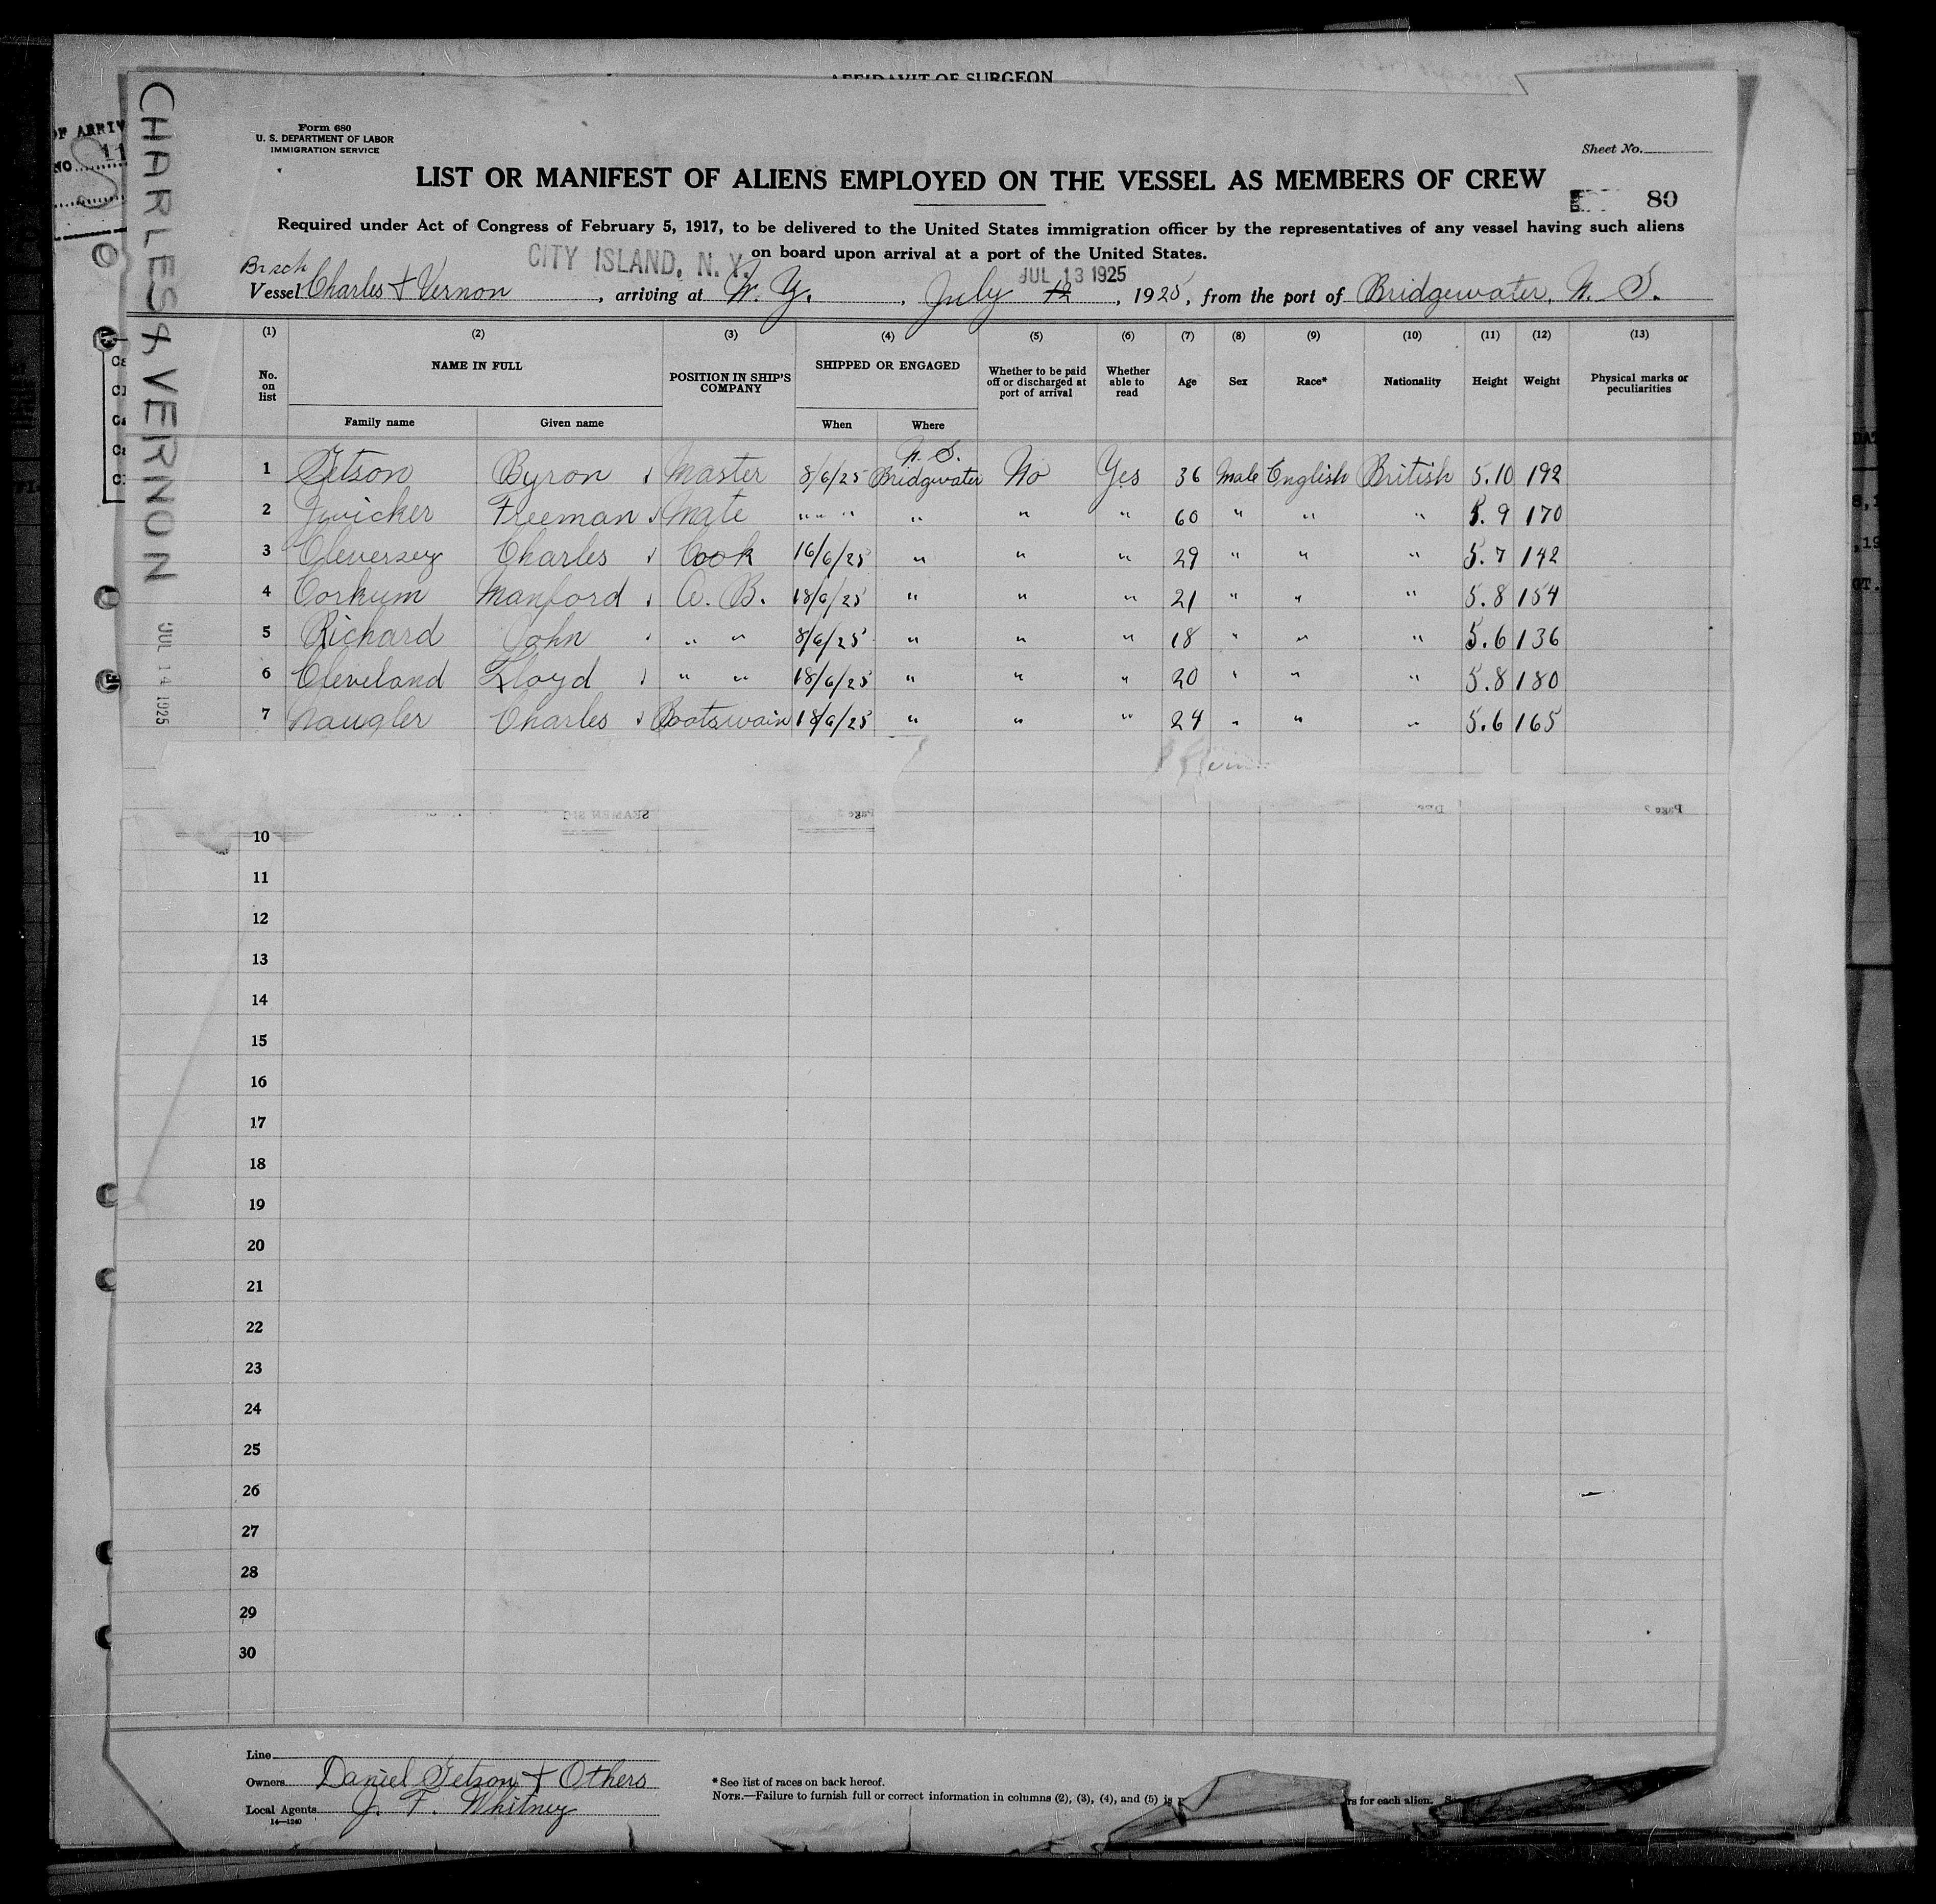 AFFIDAVIT OF SURGEON
Form 680
U. S. DEPARTMENT OF LABOR
IMMIGRATION SERVICE
Sheet No.
LIST OR MANIFEST OF ALIENS EMPLOYED ON THE VESSEL AS MEMBERS OF CREW
80
Required under Act of Congress of February 5, 1917, to be delivered to the United States immigration officer by the representatives of any vessel having such aliens
on board upon arrival at a port of the United States.
CITY ISLAND, N. Y.
JUL 13 1925
Br sch
Vessel Charles & Vernon, arriving at N. Y., July 12, 1925, from the port of Bridgewater, N. S.
CHARLES & VERNON
JUL 14 1925
(1) (2) (3) (4) (5) (6) (7) (8) (9) (10) (11) (12) (13)
No. on list NAME IN FULL POSITION IN SHIP'S COMPANY SHIPPED OR ENGAGED Whether to be paid off or discharged at port of arrival Whether able to read Age Sex Race* Nationality Height Weight Physical marks or peculiarities
Family name Given name When Where
N. S.
1 Getson Byron Master 8/6/25 Bridgwater No Yes 36 Male English British 5.10 192
2 Zwicker Freeman Mate " " " " " " 60 " " " 5.9 170
3 Cleversey Charles Cook 16/6/25 " " " 29 " " " 5.7 142
4 Corkum Manford A. B. 18/6/25 " " " 21 " " " 5.8 154
5 Richard John " " 8/6/25 " " " 18 " " " 5.6 136
6 Cleveland Lloyd " " 18/6/25 " " " 20 " " " 5.8 180
7 Naugler Charles Boatswain 18/6/25 " " " 24 " " " 5.6 165
10
11
12
13
14
15
16
17
18
19
20
21
22
23
24
25
26
27
28
29
30
Line
Owners Daniel Getson & Others
Local Agents J. F. Whitney
14—1240
* See list of races on back hereof.
NOTE.—Failure to furnish full or correct information in columns (2), (3), (4), and (5) is
rs for each alien.